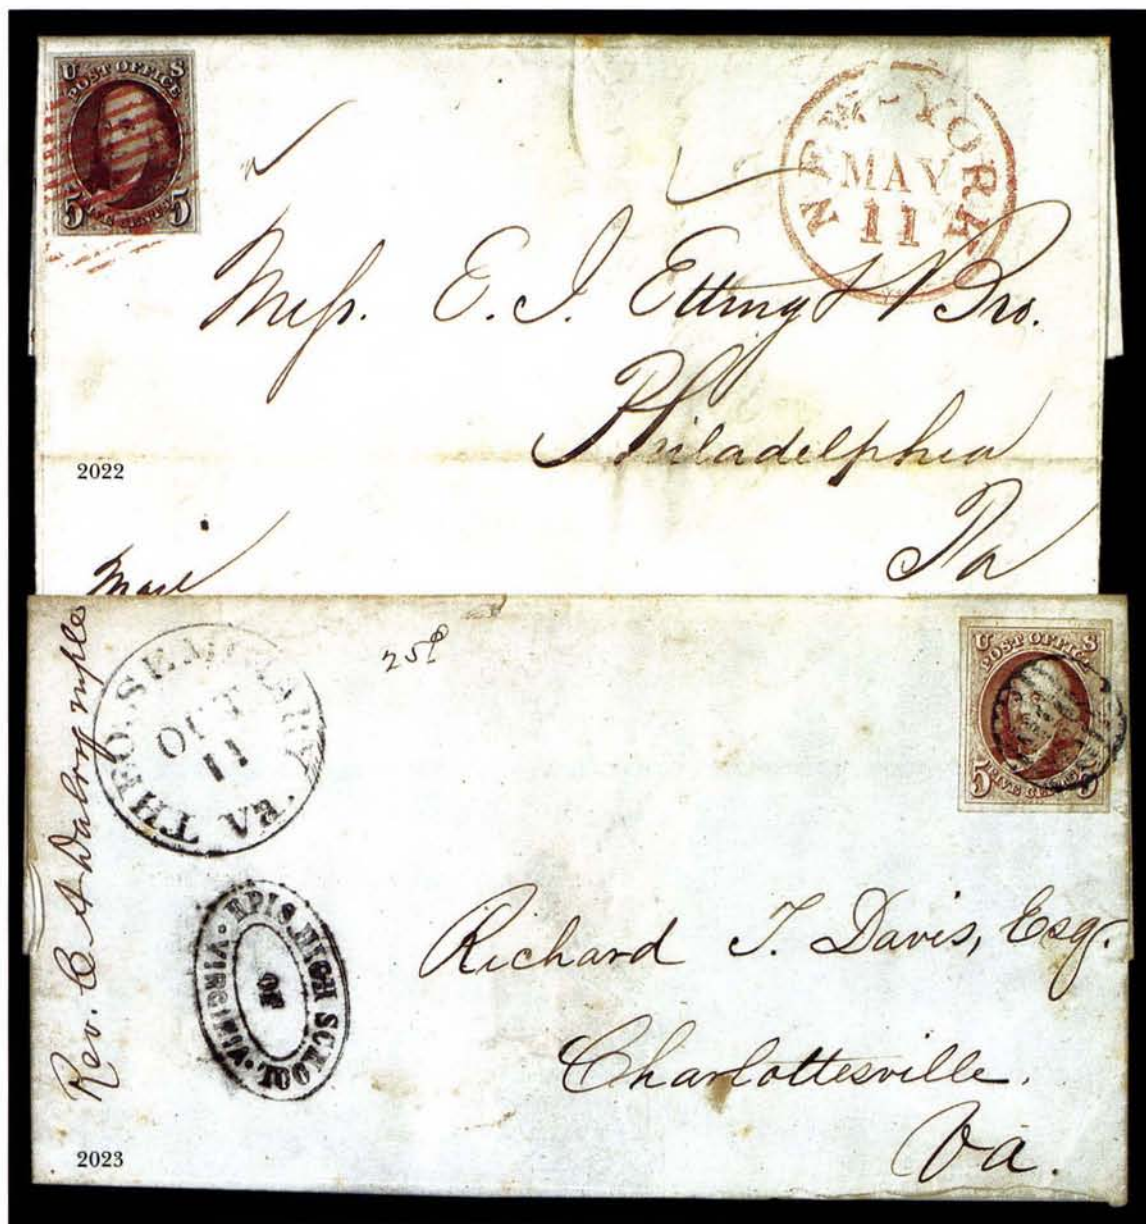 U S
POST OFFICE
5 FIVE CENTS 5
NEW-YORK
MAY
11
Mess. E. I. Etting & Bro.
Philadelphia
Pa
2022
Mail
Rev. C. A Dalrymple
THEO. SEMINARY
VA.
OCT
11
25¢
U S
POST OFFICE
5 FIVE CENTS 5
EPIS. HIGH SCHOOL
OF
VIRGINIA
Richard T. Davis, Esq.
Charlottesville.
Va.
2023